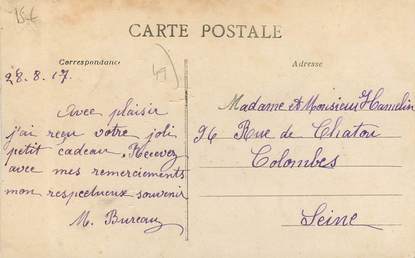 15€
CARTE POSTALE
Correspondance
Adresse
28.8.17.
49
Avec plaisir
j'ai reçu votre joli
petit cadeau. Recevez
avec mes remerciements
mon respectueux souvenir
M. Bureau
Madame et Monsieur Hamelin
96 Rue de Chatou
Colombes
Seine